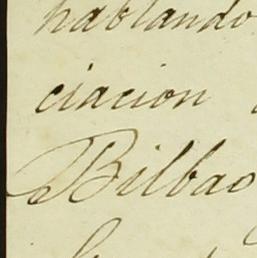 hablando
ciacion
Bilbao